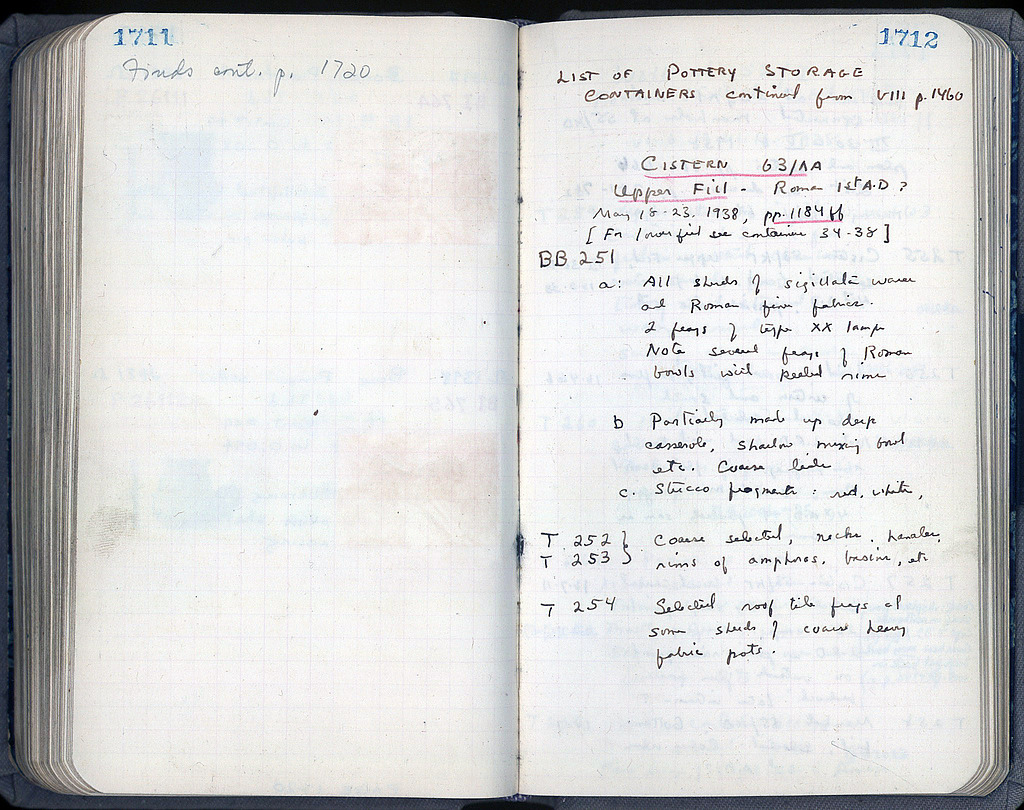 1711
Finds cont. p. 1720
1712
LIST OF POTTERY STORAGE
CONTAINERS continued from VIII p. 1460
CISTERN 63/AA
Upper Fill - Roman 1st A.D ?
May 18-23. 1938, pp. 1184 ff
[ For lower fill see container 34-38 ]
BB 251
a: All sherds of sigillata wares
and Roman fine fabrics.
2 frags of type XX lamps
Note several frags of Roman
bowls with beaded rims
b Partially made up deep
casserole, shallow mixing bowl
etc. Coarse lids
c. Stucco fragments : red, white,
T 252 } Coarse selected, necks, handles,
T 253 } rims of amphoras, basins, etc
T 254 Selected roof tile frags and
some sherds of coarse heavy
fabric pots.